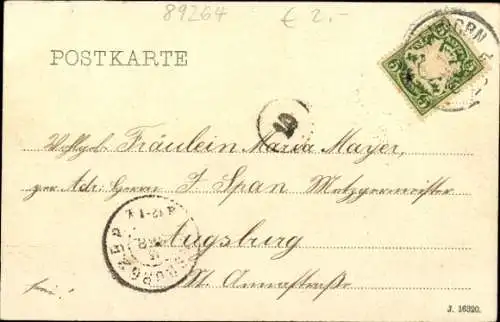 89264 € 2.-
POSTKARTE
5 5
Wohlgeb. Fräulein Maria Mayer,
per Adr. Herrn J. Span Metzgermeister
Augsburg
St. Annastraße
frei!
J. 16320.